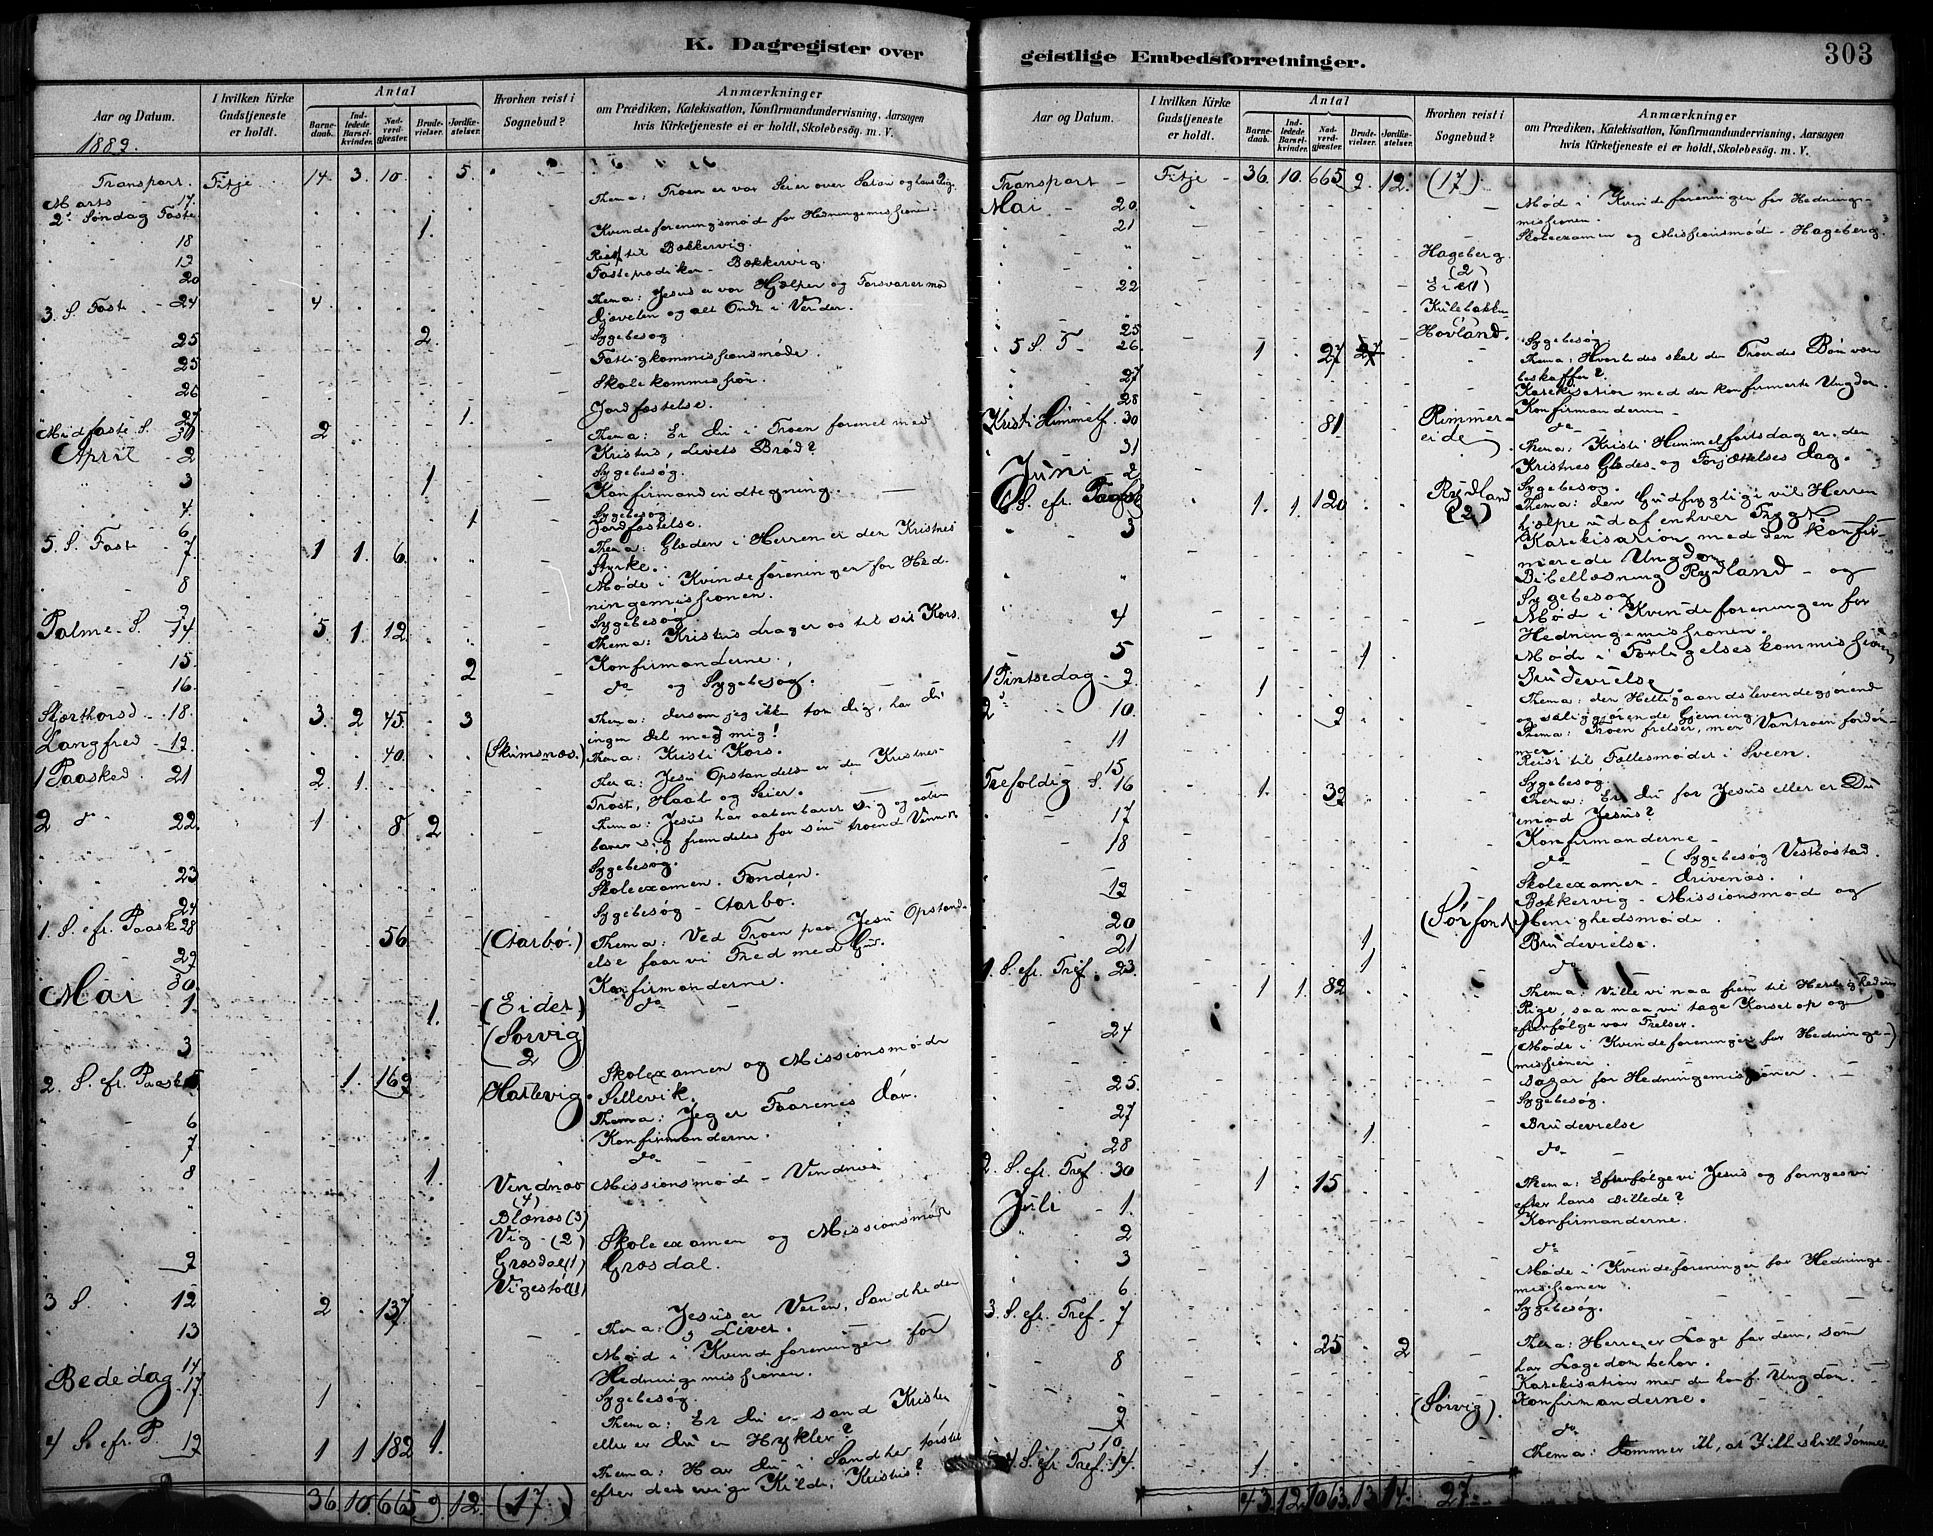 K. Dagregister over
Aar og Datum.
I hvilken Kirke Gudstjeneste er holdt.
Antal
Barnedaab. Indledede Barselkvinder. Nadverdgjæster. Brudevielser. Jordfæstelser.
Hvorhen reist i Sognebud?
Anmærkninger
om Prædiken, Katekisation, Konfirmandundervisning, Aarsagen
hvis Kirketjeneste ei er holdt, Skolebesög. m. V.
1889.
Transport. Fitje 14 3. 10. 5.
Marts 17. Thema: Troen er vor Seier over Satan og hans Rige
2. Søndag Faste 1. Kvindeforeningsmøde for Hedningemissionen
18 Reist til Bækkervig.
19 Fasteprædiken - Bækkervig.
20
3. S. Faste - 24 4 Thema: Jesus er vor Hjælper og Forsvarer mod
Djævelen og alt Ondt i Verden.
25 2. Sygebesøg
25 Fattigkommissionsmøde.
26 Skolekommission.
27 1. Jordfæstelse.
Midfaste S. 30 2 Thema: Er du i Troen forenet med
Kristus, Livets Brød?
April - 2 Sygebesøg.
3 1 Konfirmandindtegning.
4. Sygebesøg
6 1 Jordfæstelse.
5. S. Faste - 7 1 1. 6. Thema: Glæden i Herren er den Kristnes
Styrke.
8 Møde i Kvindeforeningen for Hedningemissionen.
9 Sygebesøg
Palme. S. - 14 5. 1. 12 Thema: Kristus drager os til sit Kors.
15. 2 Konfirmanderne.
16. do og Sygebesøg.
Skjærthorsd - 18. 3. 2 45. 3 Thema: dersom jeg ikke toer dig, har du
ingen del med mig!
Langfred - 19. 40. (Skimsnæs.) Thema: Kristi Kors.
1 Paasked. 21 2. 1. Thema: Jesu Opstandelse er de Kristnes
Trøst, Haab og Seier.
2 do 22. 1 8. 2 Thema: Jesus har aabenbaret sig og
Sygebesøg.
23 Skoleexamen. Fonden.
24 Sygebesøg - Aarbø.
1. S. efr. Paaske 28 56. (Aarbø.) Thema: Ved Troen paa Jesu Opstandelse
faar vi Fred med Gud.
29 Konfirmanderne.
30. do
Mai 1. 1. (Eider)
3 (Sørvig 2 Skoleexamen og Missionsmøde
Sellevik.
2. S. efr. Paaske 5 1. 169 Thema: Jeg er Faarenes dør.
6 Konfirmanderne.
7 do
8 1. Vendnæs (4) Missionsmøde - Vendnæs
Blænæs (3)
Vig - (2)
9 Græsdal (1) Skoleexamen og Missionsmøde
Græsdal.
3 S. 12 2 137. Thema: Jesus er Veien, Sandheden
og Livet.
13 Møde i Kvindeforeningen for
Hedningemissionen.
14 Sygebesøg.
Bededag 17 1 Thema: Er du en sand Kristen
eller er du en Hykler?
4 S. efr. P. - 19 1 1 182 1. Thema: Har du i Sandhed tørstet
efter den evige Kilde, Kristus?
36. 10. 665. 9. 12. (17.)
geistlige Embedsforretninger.
303
Aar og Datum.
I hvilken Kirke Gudstjeneste er holdt.
Antal
Barnedaab. Indledede Barselkvinder. Nadverdgjæster. Brudevielser. Jordfæstelser.
Hvorhen reist i Sognebud?
Anmærkninger
om Prædiken, Katekisation, Konfirmandundervisning, Aarsagen
hvis Kirketjeneste ei er holdt, Skolebesög. m. V.
Transport - Fitje - 36. 10. 665. 9. 12. (17)
Mai - 20 Møde i Kvindeforeningen for Hedningemissionen.
21 Skoleexamen og Missionsmøde - Hageberg.
Hageberg (2)
22 Eid (1)
25 Hovland. Sygebesøg
5 S. P. 26. 1 27 Thema: Hvorledes skal den Troendes Bøn være
beskaffen?
Katekisation med den konfirmerte Ungdom.
27 Konfirmanderne
28 do
Kristi Himmelf. 30 81 Rimmereide Thema: Kristi Himmelfartsdag er den
Kristnes Glædes- og Forjættelses dag.
31 Sygebesøg.
Juni - 2 Rydland (2)
6 S. efr. Paaske 1. 1. 120 Thema: den Gudfrygtige vil Herren
hjælpe ud af enhver Frygt
3 Katekisation med den konfirmerede Ungdom
Bibellæsning Rydland - og
Sygebesøg
4 Møde i Kvindeforeningen for
Hedningemissionen.
5 1 Møde i Forligelseskommissionen
Brudevielse
1 Pintsedag - 9 1 Thema: den Helligaands levendegjørende
og saliggjørende Gjerning.
2 10. 9 Thema: Troen frelser, men Vantroen fordømmer.
11 Reist til Fællesmøder i Sveen.
15 Sygebesøg.
Trefoldig. S. 16 1. 39 Thema: Er du for Jesus eller er Du
imod Jesus?
17 Konfirmanderne
18 do - (Sygebesøg Vestbøstad.
19 Skoleexamen - drivenæs.
Bækkervig - Missionsmøde og
20 (Sørfond) Menighedsmøde.
21 1 Brudevielse.
1. S. efr. Tref. 23. 1 1. 82 do
Thema: Ville vi naa frem til Herlighedens
Rige, saa maa vi tage Korset op og
efterfølge vor Frelser.
24 (Møde i Kvindeforeningen for Hedningemissionen
25. Sygebesøg.
27 Brudevielse
28 1. do
2. S. efr. Tref. 30 1 15 Thema: Efterfølge vi Jesus og fornyes vi
efter hans Billede?
Juli - 1. Konfirmanderne.
2 do
3 Møde i Kvindeforeningen for Hedningemissionen
6 Sygebesøg.
3. S. efr. Tref. 7 25 2 Thema: Herren er Læge for dem, som
har Lægedom behov.
Katekisation med den konf. Ungdom.
8 Konfirmanderne.
9 (Sørvig). do
10
4. S. efr. Tref. 14. 1. Thema: Dommer ikke, at I ikke skulle dømmes
43. 12. 1063. 13. 14. 27.